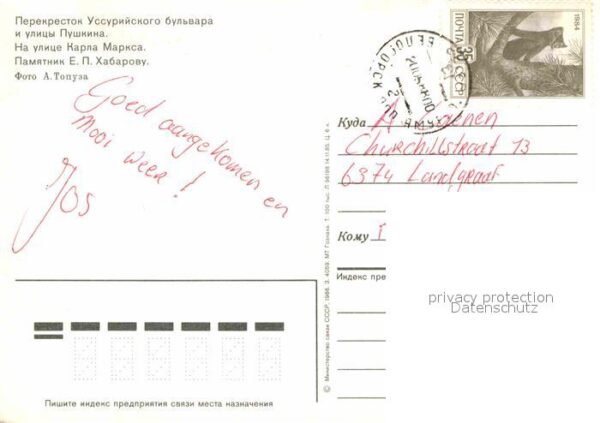 Перекресток Уссурийского бульвара
и улицы Пушкина.
На улице Карла Маркса.
Памятник Е. П. Хабарову.
Фото А. Топуза
Goed aangekomen en
Mooi weer !
Jos
ПОЧТА СССР
35
1984
БЕЛОГОРСК
Куда A
Churchillstraat 13
6374 Landgraaf
Кому
Индекс пре
© Министерство связи СССР, 1986. З. 4059. МТ Гознака. Т. 100 тыс.
Пишите индекс предприятия связи места назначения
privacy protection
Datenschutz